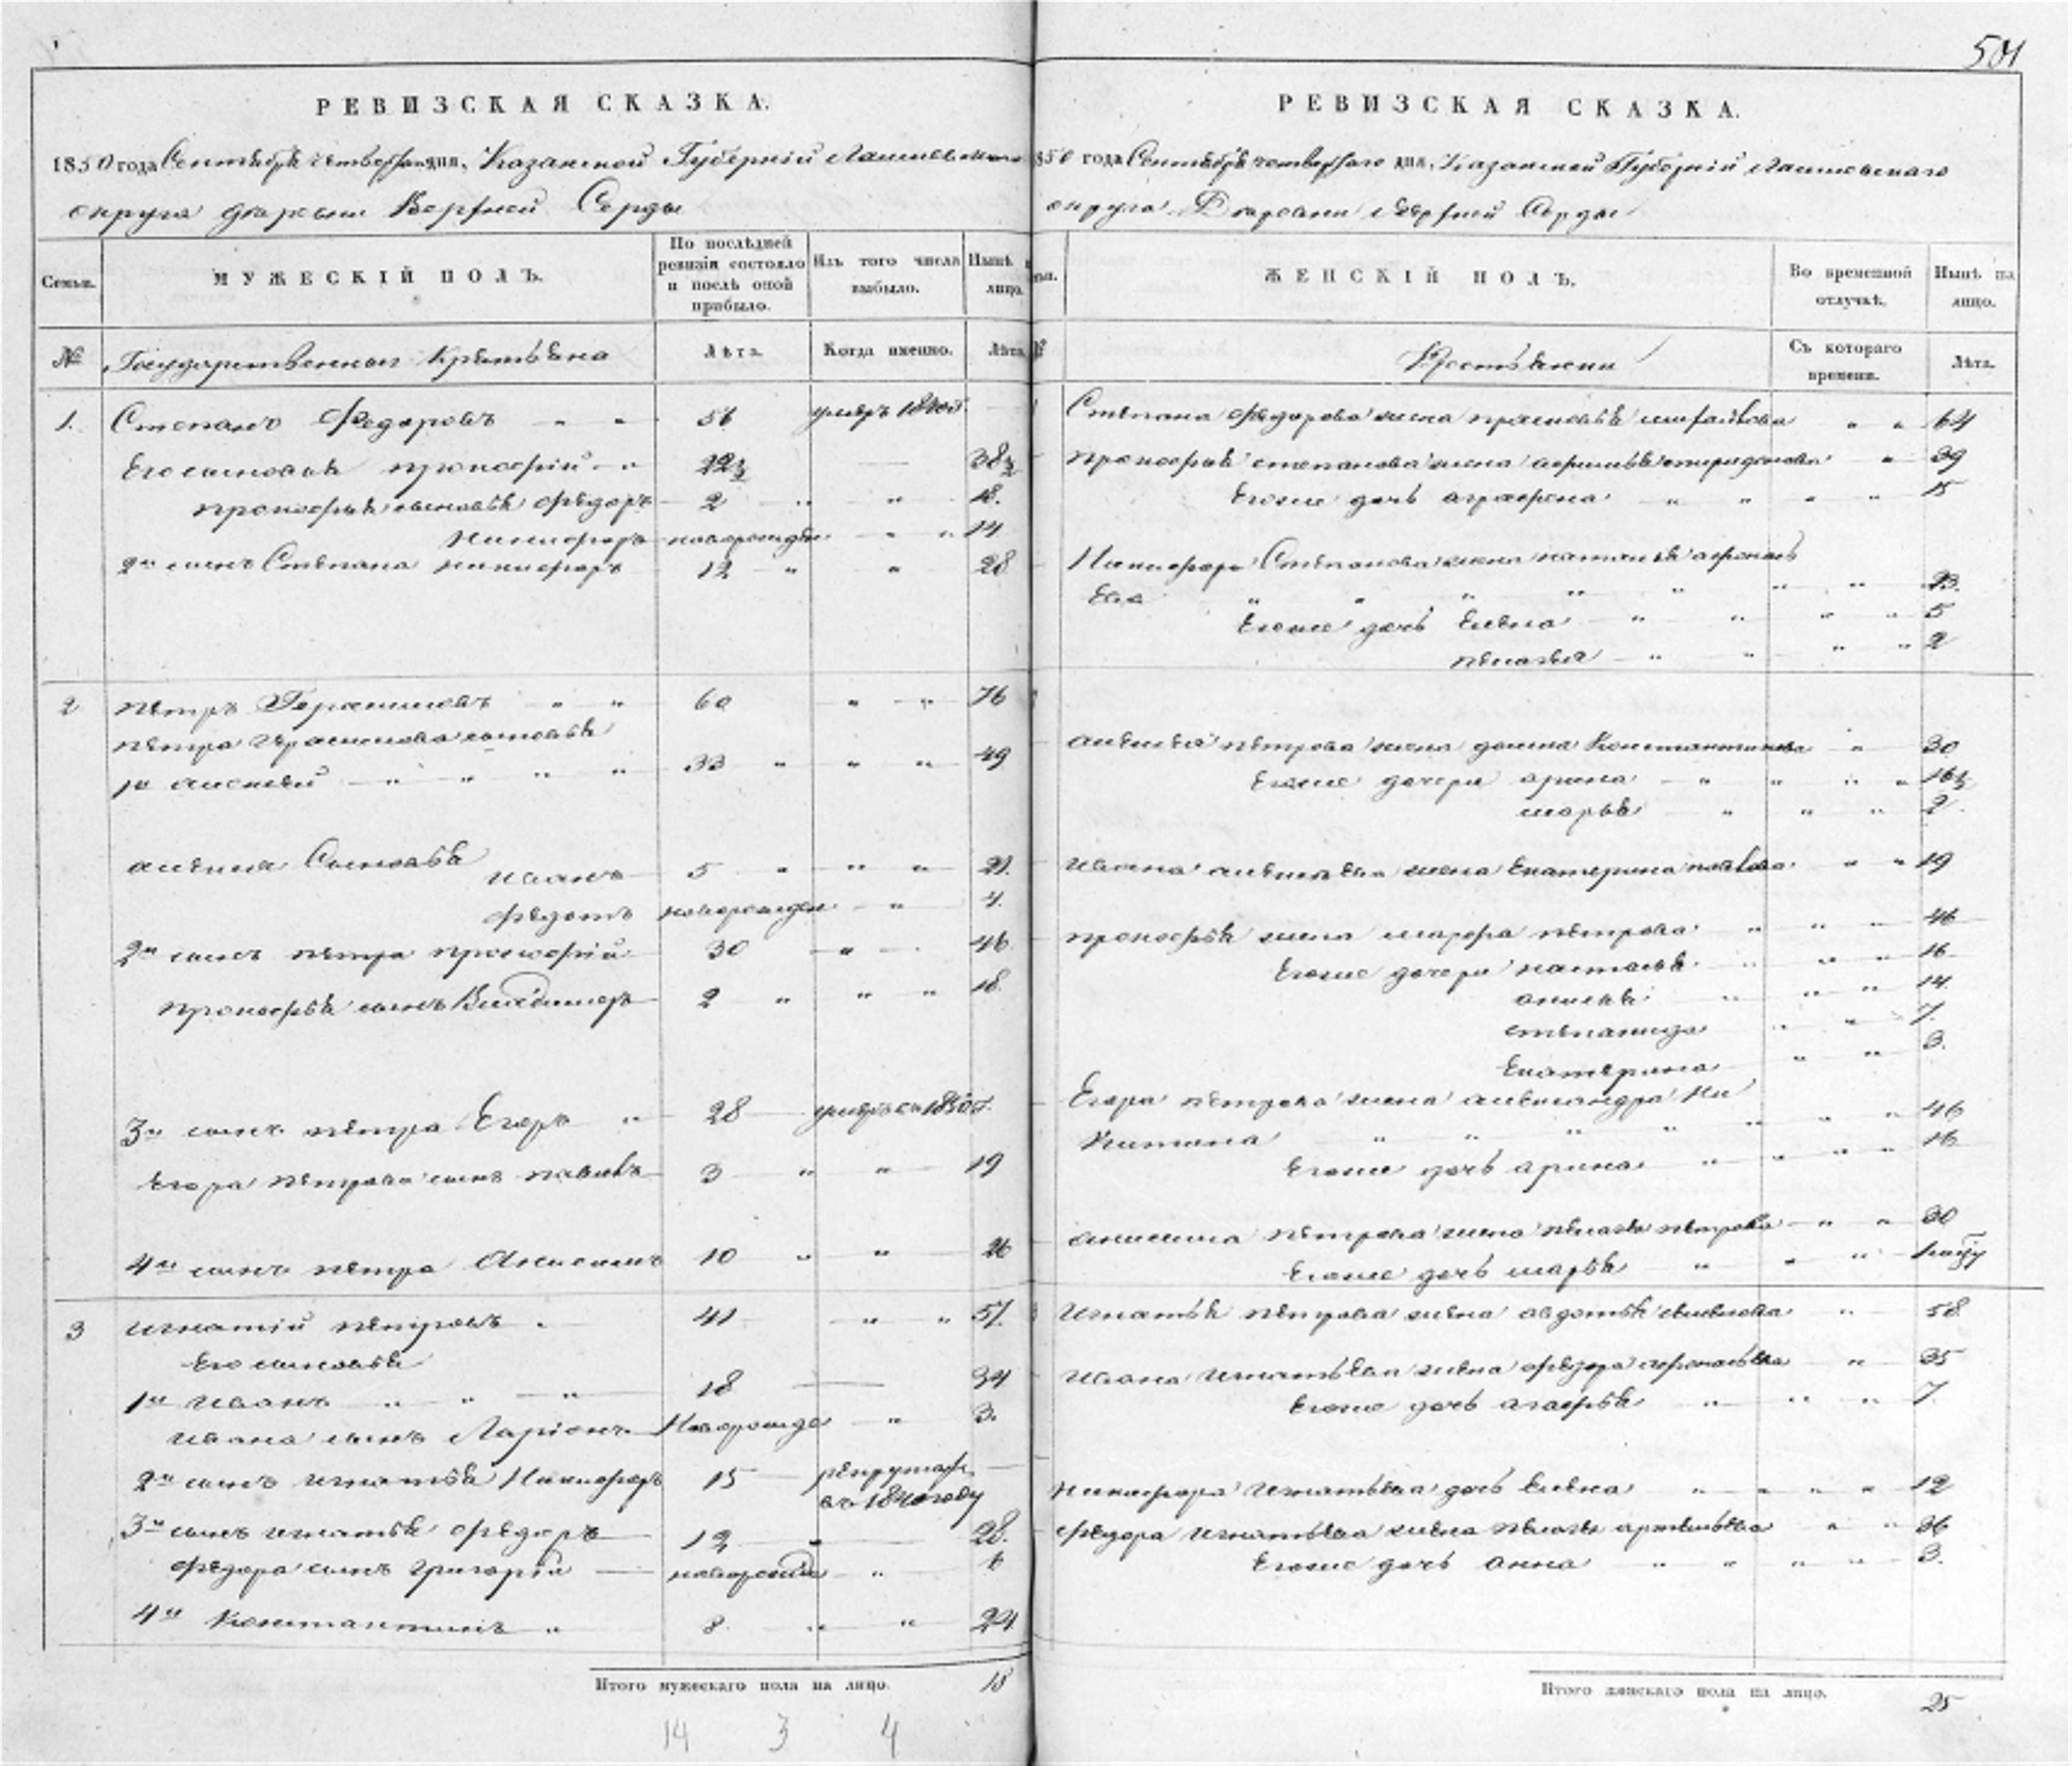 501
РЕВИЗСКАЯ СКАЗКА.
1850 года Сентября четвертаго дня, Казанской Губерніи Лаишевскаго
округа деревни Верхней Серды
Семьи. МУЖЕСКІЙ ПОЛЪ. По послѣдней ревизіи состояло и послѣ оной прибыло. Изъ того числа выбыло. Нынѣ на лицо.
№ Государственныя Крестьяна Лѣта. Когда именно. Лѣта
1. Степанъ Федоровъ " " 56 умеръ 1840
Его сыновья прокофій " 22½ 38½
прокофья сыновья федоръ 2 " " 18.
Никифоръ новорожден " " 14
2й сынъ Степана никифоръ 12 " " 28
2 петръ Герасимовъ " " 60 " " 76
петра Герасимова сыновья
1й алексей " " " " 33 " " " 49
алексея Сыновья
иванъ 5 " " " 21.
федотъ новорожден " 4.
2й сынъ петра прокофій 30 " 46
прокофья сынъ Владимеръ 2 " " " 18.
3й сынъ петра Егоръ " 28 умеръ въ 1850 г.
Егора петрова сынъ павелъ 3 " " 19
4й сынъ петра Анисимъ 10 " " 26
3 игнатій петровъ " 41 " " 57.
Его сыновья
1й иванъ " " " 18 34
ивана сынъ Ларіонъ Новорожде " 3.
2й сынъ игнатья Никифоръ 15 рекрутах
въ 1840 году
3й сынъ игнатья федоръ 12 " 28.
федора сынъ григорій новорожде " 6
4й Константинъ " 8 " " 24
Итого мужескаго пола на лицо. 18
14 3 4
РЕВИЗСКАЯ СКАЗКА.
850 года Сентября четвертаго дня, Казанской Губерніи Лаишевскаго
округа Деревни Верхней Серды
ЖЕНСКІЙ ПОЛЪ. Во временной отлучкѣ. Нынѣ на лицо.
№ Крестьянки Съ котораго времени. Лѣта.
Степана федорова жена прасковья михайлова " " 64
прокофья степанова жена афимья спиридонова " 39
Егоже дочь аграфена " " " " 15
Никифора Степанова жена наталья афонась
ева " " " " " " " 23.
Егоже дочь Елена " " " " 5
пелагея " " " " 2
алексея петрова жена домна Константинова " 30
Егоже дочери арина " " " " 16½
марья " " " 2.
ивана алексеева жена Екатерина яковлева " " 19
прокофья жена марфа петрова " " " 46
Егоже дочери наталья " " " 16
анисья " " " 14.
степанида " " 7.
Екатерина " " 3.
Егора петрова жена александра Ни
китина " " " " " " " 46
Егоже дочь арина " " " " 16
анисима петрова жена пелагея петрова " " 30
Егоже дочь марья " " "
игнатья петрова жена авдотья " 58
ивана игнатьева жена федора афонасьева " 35
Егоже дочь агафья " " " 7.
никифора игнатьева дочь Елена " " " " 12
федора игнатьева жена пелагея артемьева " " 36
Егоже дочь анна " " " " 3.
Итого женскаго пола на лицо. 25